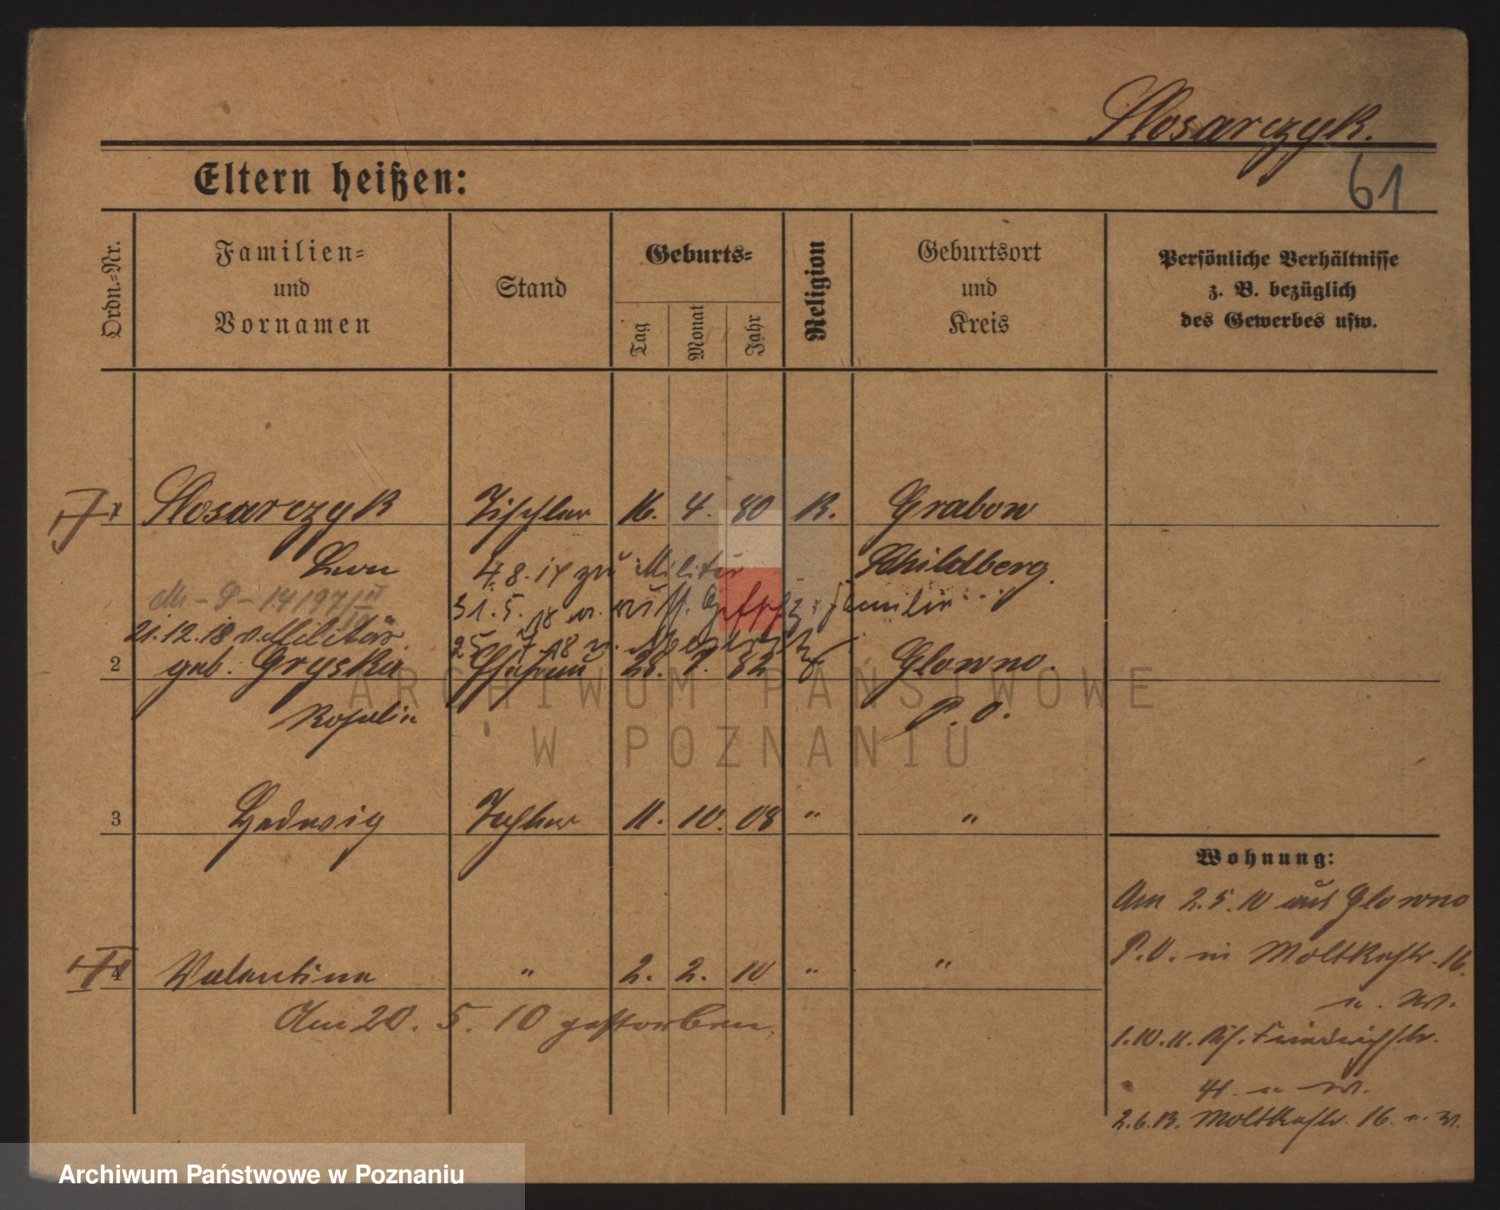 Slosarczyk.
61
Eltern heißen:
Ordn.-Nr.
Familien- und Vornamen
Stand
Geburts-
Tag
Monat
Jahr
Religion
Geburtsort und Kreis
Persönliche Verhältnisse z. B. bezüglich des Gewerbes usw.
1 Slosarczyk Tischler 16. 4. 80 K. Grabow
Leon 4.8.17 zu Militär Schildberg.
31.5.18 Familie
21.12.18 v. Militär.
2 geb. Gryska Ehefrau 28. 82 Glowno.
Rosalie P.O.
3 Hedwig Tochter 11. 10. 08 " "
4 Valentina " 2. 2. 10 " "
Am 20. 5. 10 gestorben.
Wohnung:
Am 2.5.10 aus Glowno
P.O. in Moltkestr. 16.
1.10.11. Friedrichstr.
2.6.13. Moltkestr. 16
ARCHIWUM PAŃSTWOWE
W POZNANIU
Archiwum Państwowe w Poznaniu